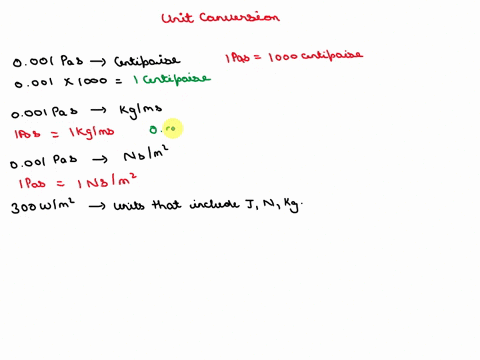 Unit Conversion
0.001 Pas → Centipaise 1Pas = 1000 centipaise
0.001 x 1000 = 1 Centipaise
0.001 Pas → Kg/ms
1Pas = 1Kg/ms 0.00
0.001 Pas → Ns/m²
1Pas = 1 Ns/m²
300W/m² → units that include J, N, Kg.